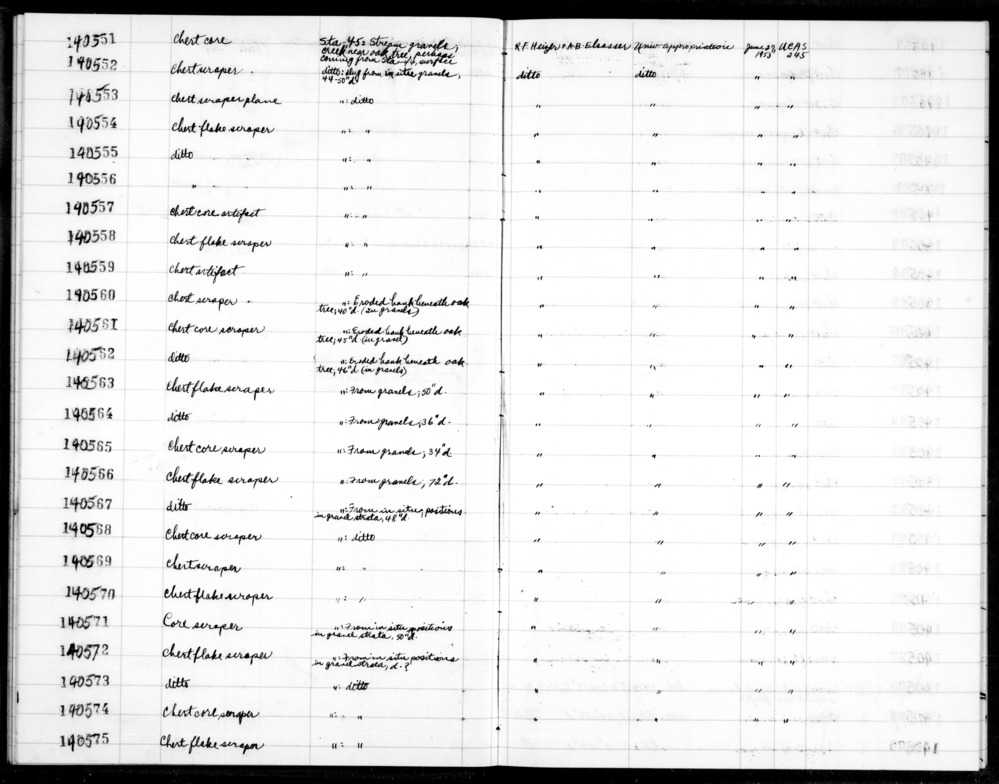 140551 Chert core Sta. 45: Stream gravels, R.F. Heizer & A.B. Elsasser Univ. appropriation June 27, UCAS
creek near oak tree, perhaps 1953 245
coming from Sta. surface
140552 Chert scraper. ditto: dug from in situ gravels, ditto ditto " "
44-50"d.
140553 Chert scraper plane ": ditto " " " "
140554 Chert flake scraper ": " " " " "
140555 ditto ": " " " " "
140556 " ": " " " " "
140557 Chert core artifact ": " " " " "
140558 Chert flake scraper ": " " " " "
140559 Chert artifact ": " " " " "
140560 Chert scraper. ": Eroded bank beneath oak " " " "
tree; 40"d. (in gravels)
140561 Chert core scraper ": Eroded bank beneath oak " " " "
tree; 45"d. (in gravel)
140562 ditto ": Eroded bank beneath oak " " " "
tree, 46"d. (in gravels)
140563 Chert flake scraper ": From gravels; 50"d. " " " "
140564 ditto ": From gravels; 36"d. " " " "
140565 Chert core scraper ": From gravels; 34"d " " " "
140566 Chert flake scraper ": From gravels, 72"d. " " " "
140567 ditto ": From in situ positions " " " "
in gravel strata, 48"d.
140568 Chert core scraper ": ditto " " " "
140569 Chert scraper ": " " " " "
140570 Chert flake scraper ": " " " " "
140571 Core scraper ": From in situ positions " " " "
in gravel strata, 50"d.
140572 Chert flake scraper ": From in situ positions " " " "
in gravel strata, d.?
140573 ditto ": ditto " " " "
140574 Chert core scraper ": " " " " "
140575 Chert flake scraper ": " " " " "